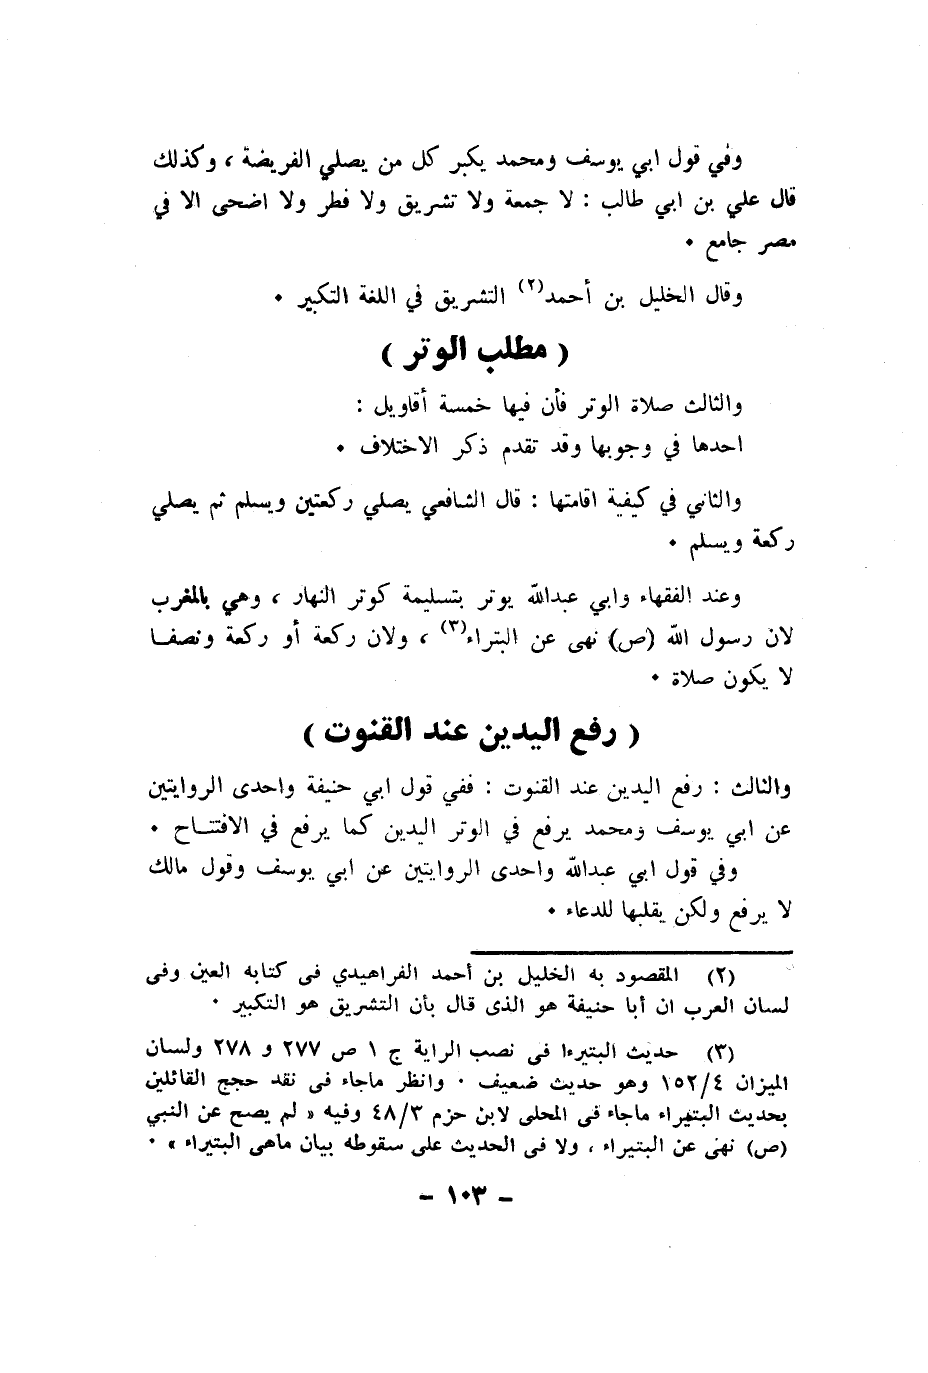 وفي قول ابي يوسف ومحمد يكبر كل من يصلي الفريضة ، وكذلك
قال علي بن ابي طالب : لا جمعة ولا تشريق ولا فطر ولا اضحى الا في
مصر جامع ٠
وقال الخليل بن أحمد(٢) التشريق في اللغة التكبير ٠
( مطلب الوتر )
والثالث صلاة الوتر فأن فيها خمسة أقاويل :
احدها في وجوبها وقد تقدم ذكر الاختلاف ٠
والثاني في كيفية اقامتها : قال الشافعي يصلي ركعتين ويسلم ثم يصلي
ركعة ويسلم ٠
وعند الفقهاء وابي عبدالله يوتر بتسليمة كوتر النهار ، وهي بالمغرب
لان رسول الله (ص) نهى عن البتراء(٣) ، ولان ركعة أو ركعة ونصفا
لا يكون صلاة ٠
( رفع اليدين عند القنوت )
والثالث : رفع اليدين عند القنوت : ففي قول ابي حنيفة واحدى الروايتين
عن ابي يوسف ومحمد يرفع في الوتر اليدين كما يرفع في الافتتاح ٠
وفي قول ابي عبدالله واحدى الروايتين عن ابي يوسف وقول مالك
لا يرفع ولكن يقلبها للدعاء ٠
(٢) المقصود به الخليل بن أحمد الفراهيدي فى كتابه العين وفى
لسان العرب ان أبا حنيفة هو الذى قال بأن التشريق هو التكبير ٠
(٣) حديث البتيرءا فى نصب الراية ج ١ ص ٢٧٧ و ٢٧٨ ولسان
الميزان ١٥٢/٤ وهو حديث ضعيف ٠ وانظر ماجاء فى نقد حجج القائلين
بحديث البتيراء ماجاء فى المحلى لابن حزم ٤٨/٣ وفيه « لم يصح عن النبي
(ص) نهى عن البتيراء ، ولا فى الحديث على سقوطه بيان ماهى البتيراء » ٠
– ١٠٣ –